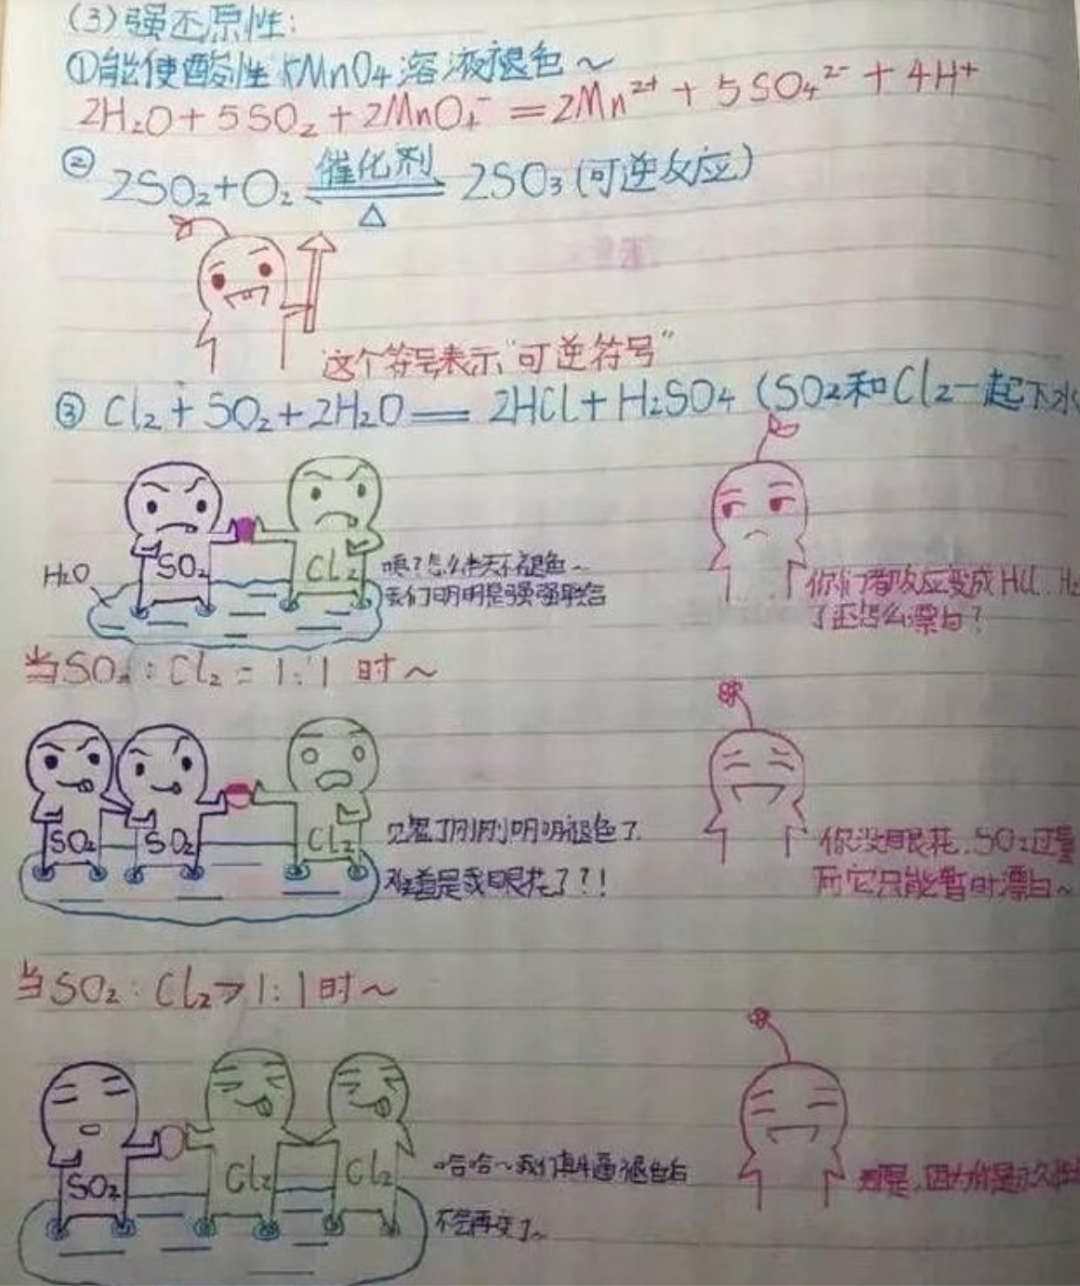 (3)强还原性:
①能使酸性KMnO4溶液褪色~
2H₂O+5SO₂+2MnO₄⁻=2Mn²⁺+5SO₄²⁻+4H⁺
② 2SO₂+O₂ 催化剂 △ 2SO₃(可逆反应)
这个符号表示"可逆符号"
③ Cl₂+SO₂+2H₂O══2HCl+H₂SO₄(SO₂和Cl₂一起下水
SO₂
Cl₂
H₂O
咦?怎么半天不褪色~
我们明明是强强联合
你们都反应变成HCl、H₂
了还怎么漂白?
当SO₂:Cl₂=1:1时~
SO₂
SO₂
Cl₂
见鬼了刚刚明明褪色了
难道是我眼花了?!
你没眼花、SO₂过量
而它只能暂时漂白~
当SO₂:Cl₂>1:1时~
SO₂
Cl₂
Cl₂
哈哈~我们真牛逼褪色后
不会再变了~
因为你是永久性